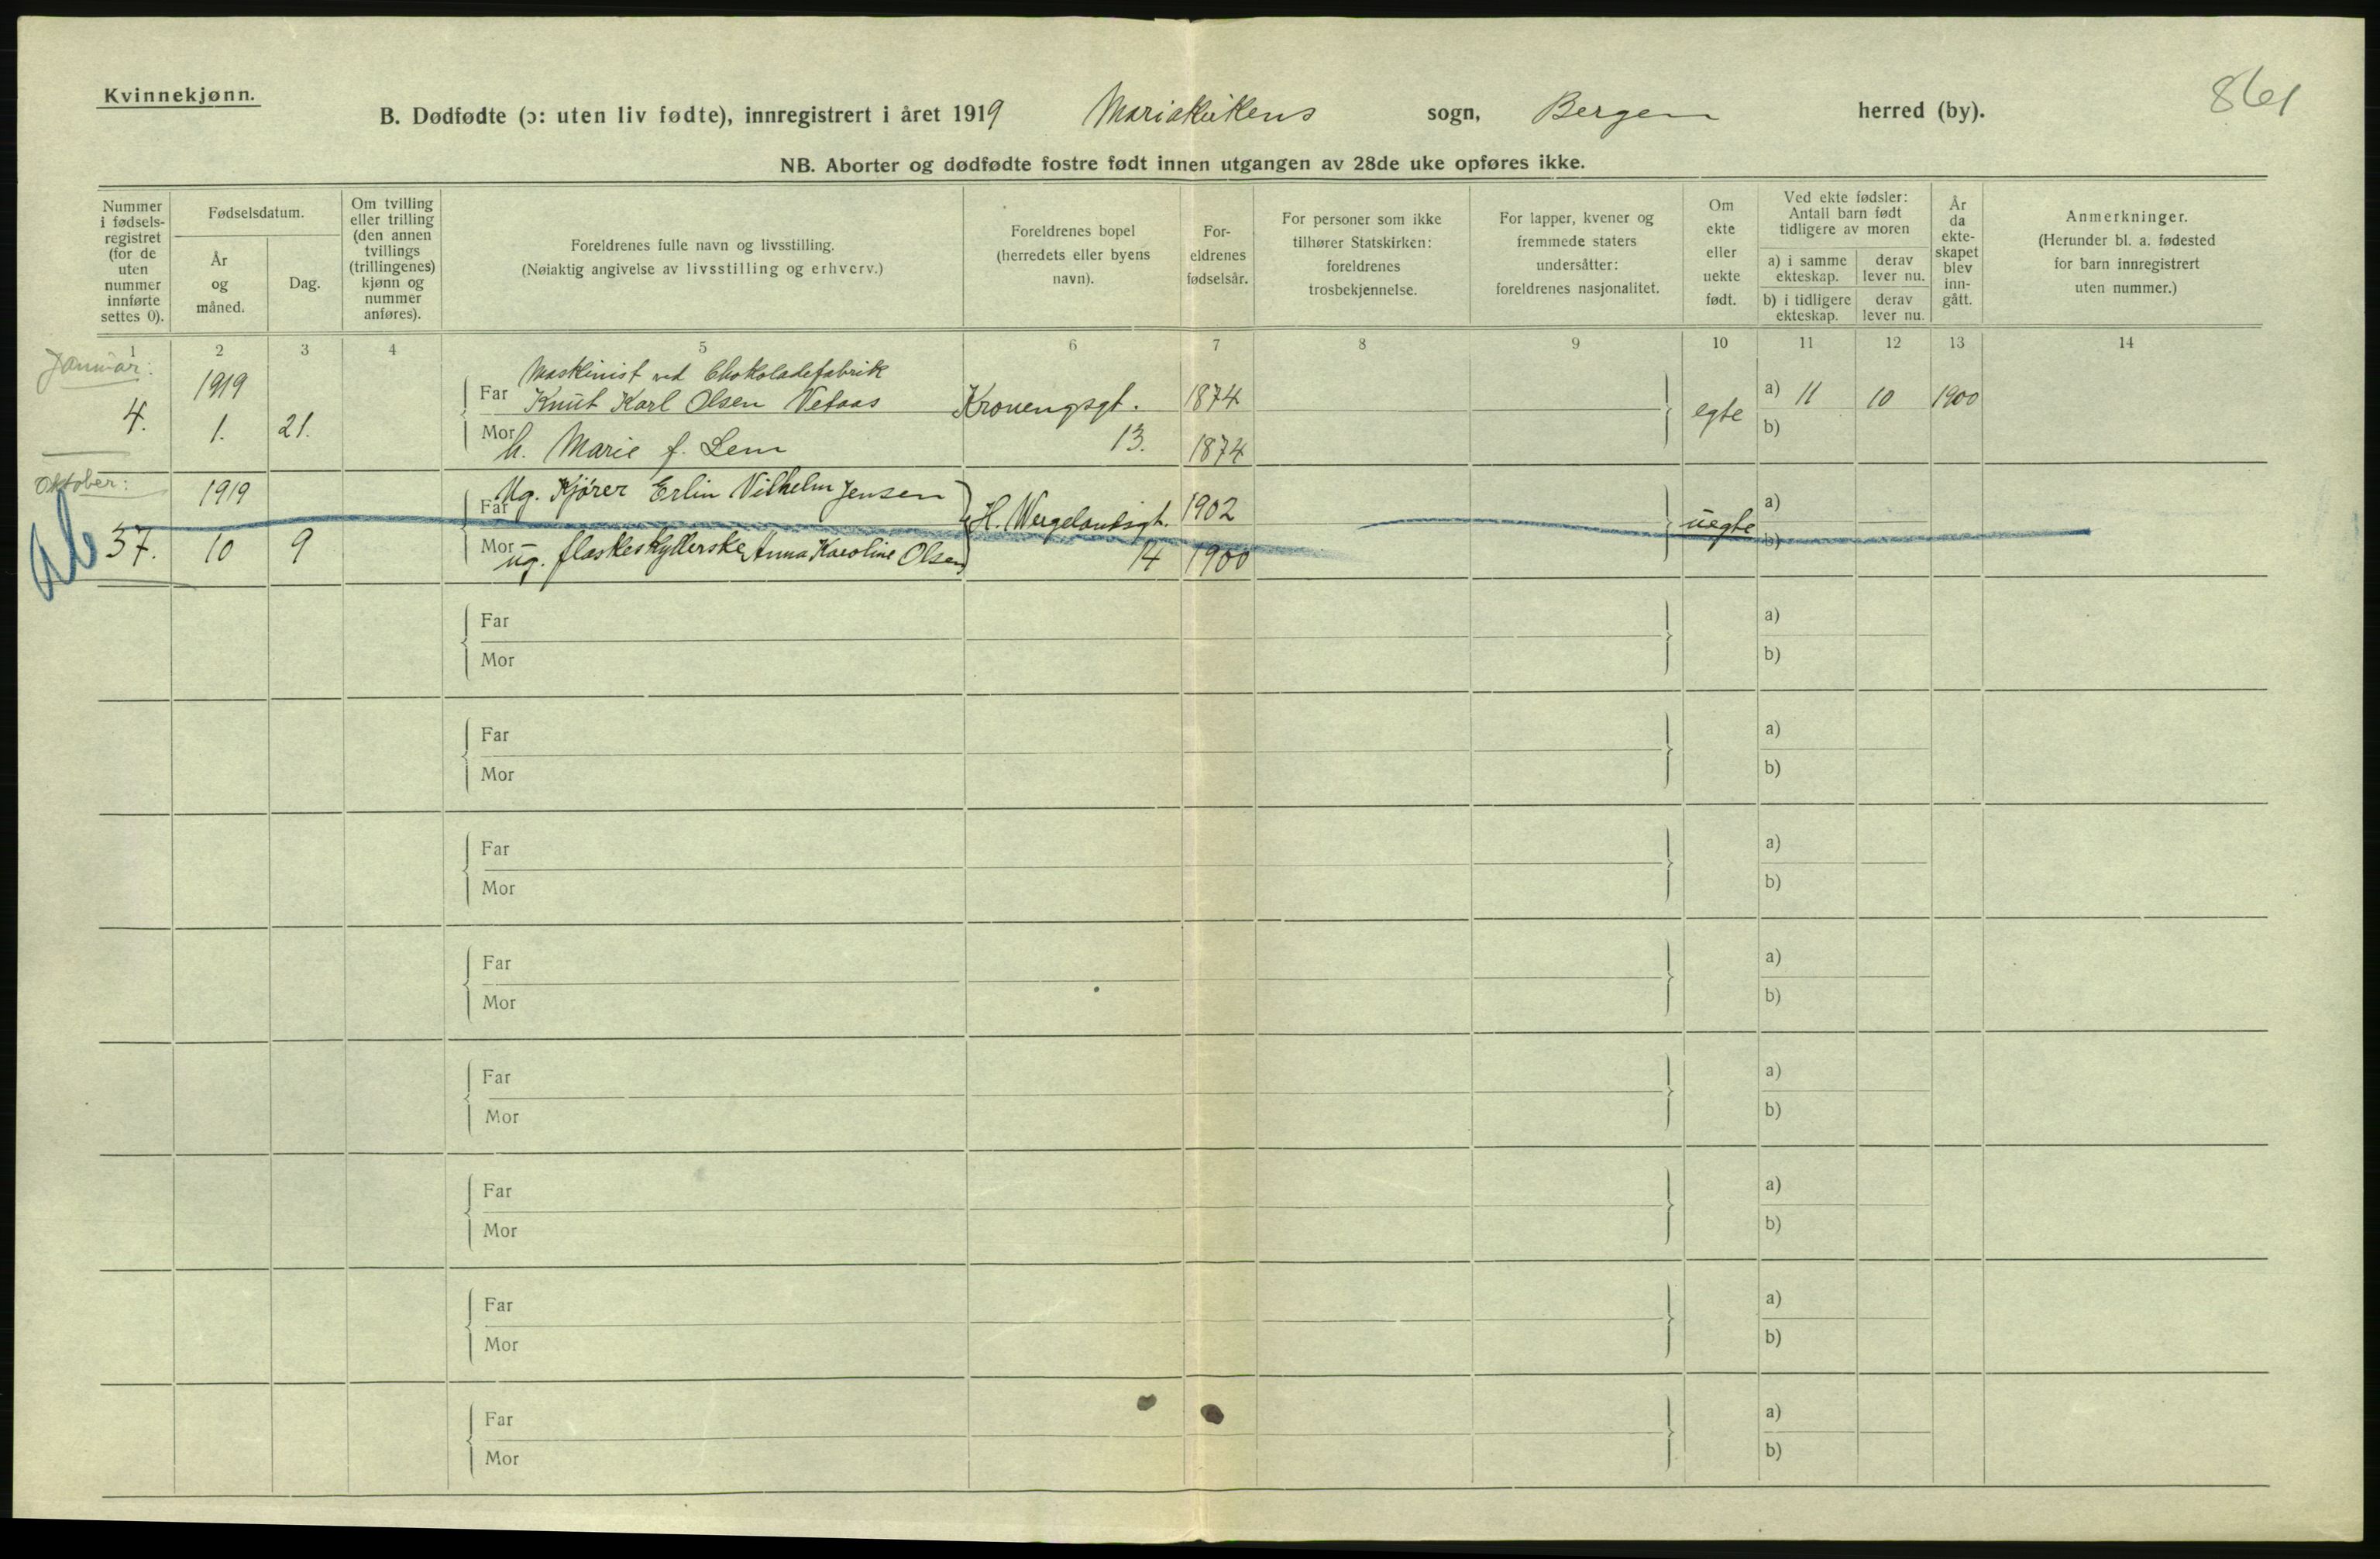 Kvinnekjønn.
861
B. Dødfødte (ɔ: uten liv fødte), innregistrert i året 1919 Mariakirkens sogn, Bergen herred (by).
NB. Aborter og dødfødte fostre født innen utgangen av 28de uke opføres ikke.
Nummer
i fødsels-
registret
(for de
uten
nummer
innførte
settes 0).
Fødselsdatum.
År
og
måned.
Dag.
Om tvilling
eller trilling
(den annen
tvillings
(trillingenes)
kjønn og
nummer
anføres).
Foreldrenes fulle navn og livsstilling.
(Nøiaktig angivelse av livsstilling og erhverv.)
Foreldrenes bopel
(herredets eller byens
navn).
For-
eldrenes
fødselsår.
For personer som ikke
tilhører Statskirken:
foreldrenes
trosbekjennelse.
For lapper, kvener og
fremmede staters
undersåtter:
foreldrenes nasjonalitet.
Om
ekte
eller
uekte
født.
Ved ekte fødsler:
Antall barn født
tidligere av moren
a) i samme
ekteskap.
derav
lever nu.
b) i tidligere
ekteskap.
derav
lever nu.
År
da
ekte-
skapet
blev
inn-
gått.
Anmerkninger.
(Herunder bl. a. fødested
for barn innregistrert
uten nummer.)
1 2 3 4 5 6 7 8 9 10 11 12 13 14
Januar:
4.
1919
1. 21.
Maskinist ved Chokoladefabrik
Far Knut Karl Olsen Vetaas
Mor h. Marie f. Lem
13.
1874
1874
egte
a) 11 10 1900
b)
Oktober:
37.
1919
10 9
Ug. Kjører Erlin Vilhelm Jensen
Far
Mor ug. flaskeskyllerske Anna Karoline Olsen
H. Wergelandsgt.
14
1902
1900
uegte
a)
b)
Far a)
Mor b)
Far a)
Mor b)
Far a)
Mor b)
Far a)
Mor b)
Far a)
Mor b)
Far a)
Mor b)
Far a)
Mor b)
Far a)
Mor b)